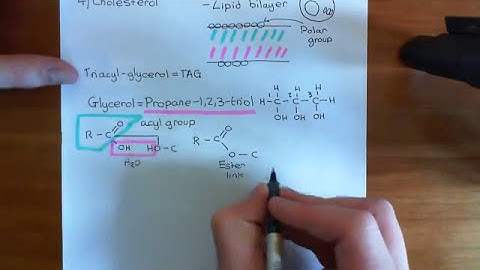 4) Cholesterol
- Lipid bilayer
Polar
group
Triacyl-glycerol = TAG
Glycerol = Propane-1,2,3-triol
H H H
H-C-C-C-H
1 2 3
OH OH OH
acyl group
R-C O
OH HO-C
H₂O
R-C O
O-C
Ester
link